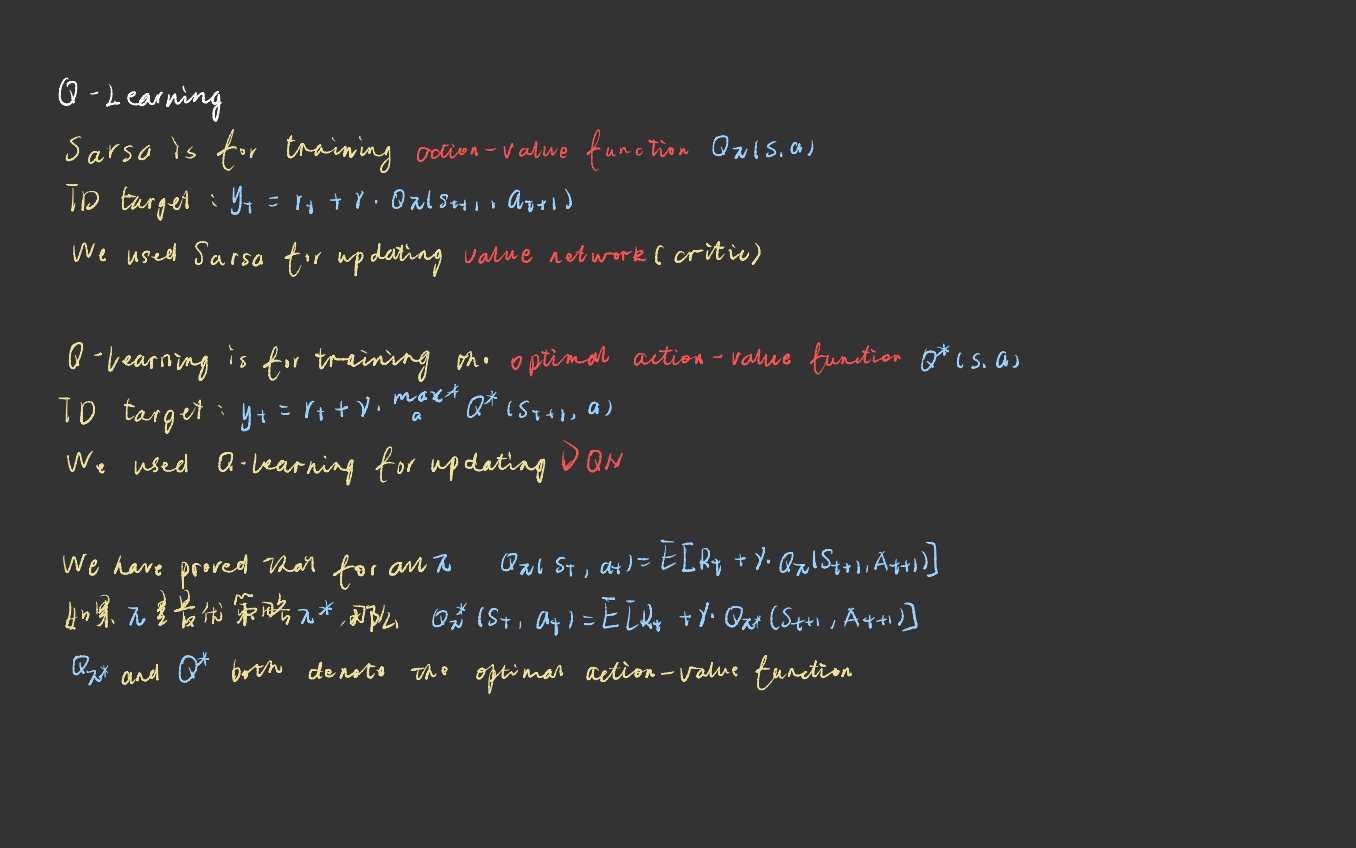 Q-Learning
Sarsa is for training action-value function Qπ(s,a)
TD target: yt = rt + γ · Qπ(st+1, at+1)
We used Sarsa for updating value network (critic)
Q-learning is for training the optimal action-value function Q*(s,a)
TD target: yt = rt + γ · max* a Q*(st+1, a)
We used Q-learning for updating DQN
We have proved that for all π Qπ(st, at) = E[Rt + γ · Qπ(St+1, At+1)]
如果 π 是最优策略 π*,那么 Qπ*(St, at) = E[Rt + γ · Qπ*(St+1, At+1)]
Qπ* and Q* both denote the optimal action-value function